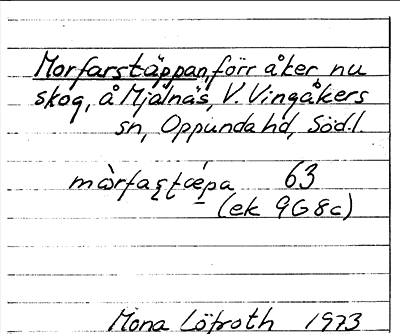 Morfarstäppan, förr åker nu
skog, å Mjälnäs, V. Vingåkers
sn, Oppunda hd, Söd.l.
mòrfaʂʈæ̀pa 63
(ek 9G8c)
Mona Löfroth 1973